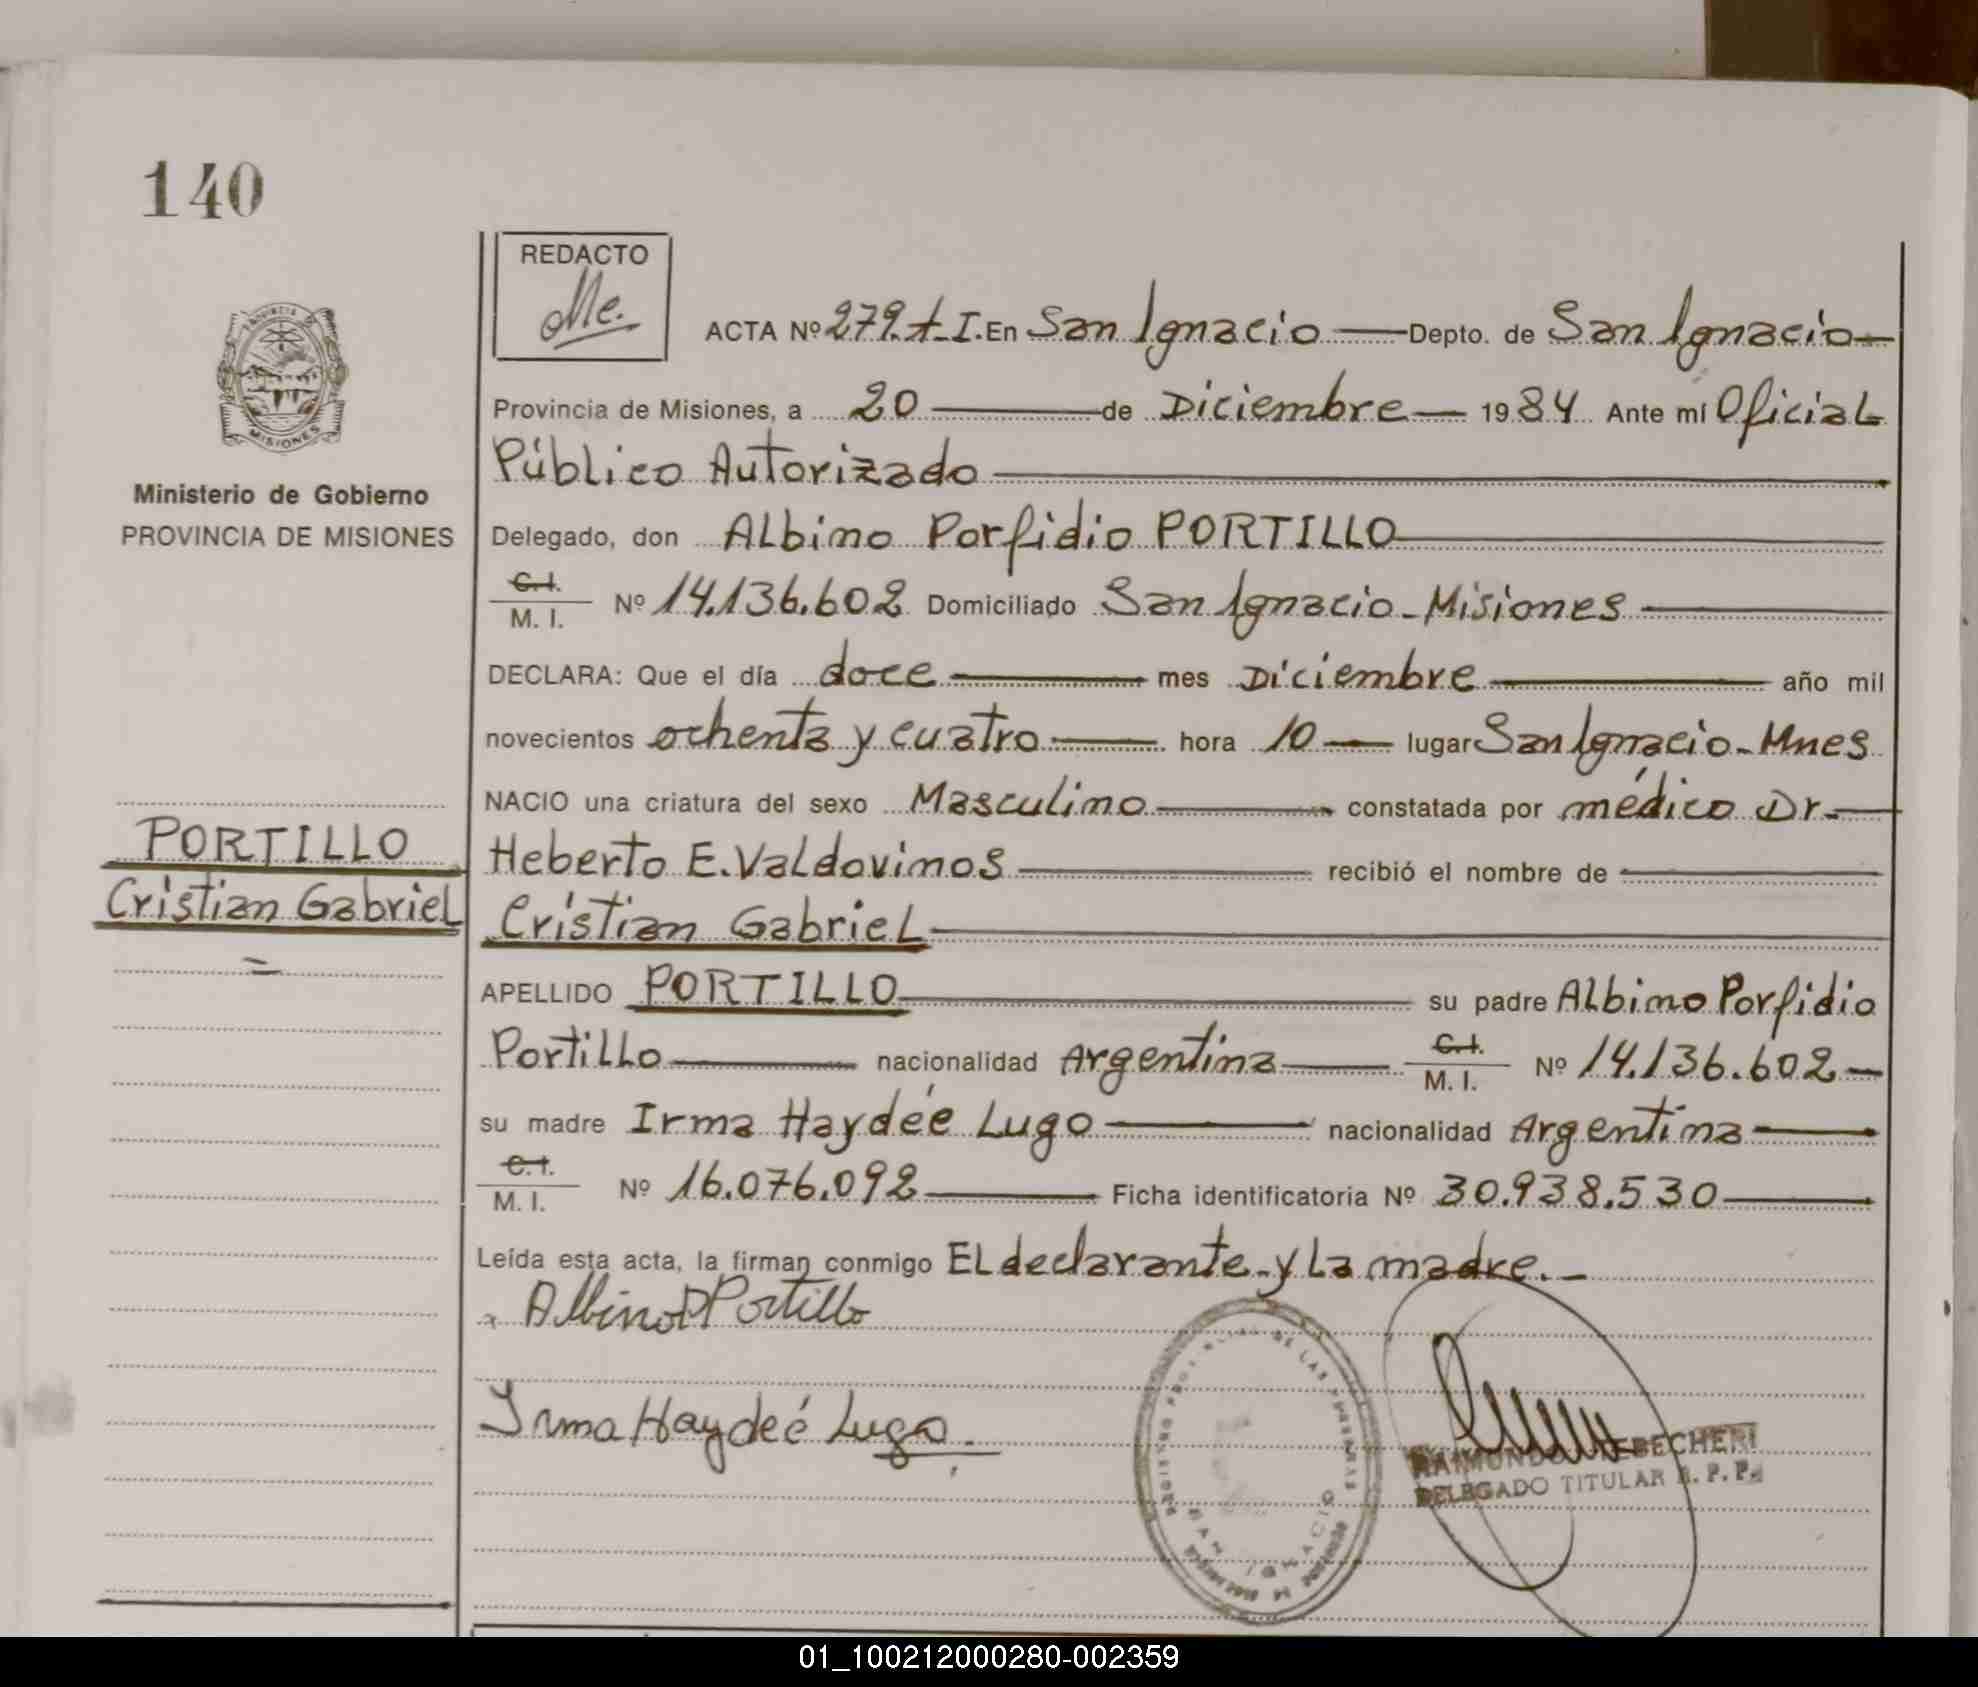 140
REDACTO
Me.
ACTA Nº 279. t-I. En San Ignacio Depto. de San Ignacio
Provincia de Misiones, a 20 de Diciembre 1984 Ante mí Oficial
Público Autorizado
MISIONES
Ministerio de Gobierno
PROVINCIA DE MISIONES
Delegado, don Albino Porfidio PORTILLO
C.I.
M. I. Nº 14.136.602 Domiciliado San Ignacio - Misiones
DECLARA: Que el día doce mes Diciembre año mil
novecientos ochenta y cuatro hora 10 lugar San Ignacio - Mnes
NACIO una criatura del sexo Masculino constatada por médico Dr.
PORTILLO
Heberto E. Valdovinos recibió el nombre de
Cristian Gabriel
Cristian Gabriel
APELLIDO PORTILLO su padre Albino Porfidio
Portillo nacionalidad Argentina C.I. M. I. Nº 14.136.602
su madre Irma Haydée Lugo nacionalidad Argentina
C.I.
M. I. Nº 16.076.092 Ficha identificatoria Nº 30.938.530
Leída esta acta, la firman conmigo El declarante y la madre.
Albino P Portillo
Irma Haydeé Lugo
RAIMUNDO
DELEGADO TITULAR R. P. P.
SAN IGNACIO
01_100212000280-002359